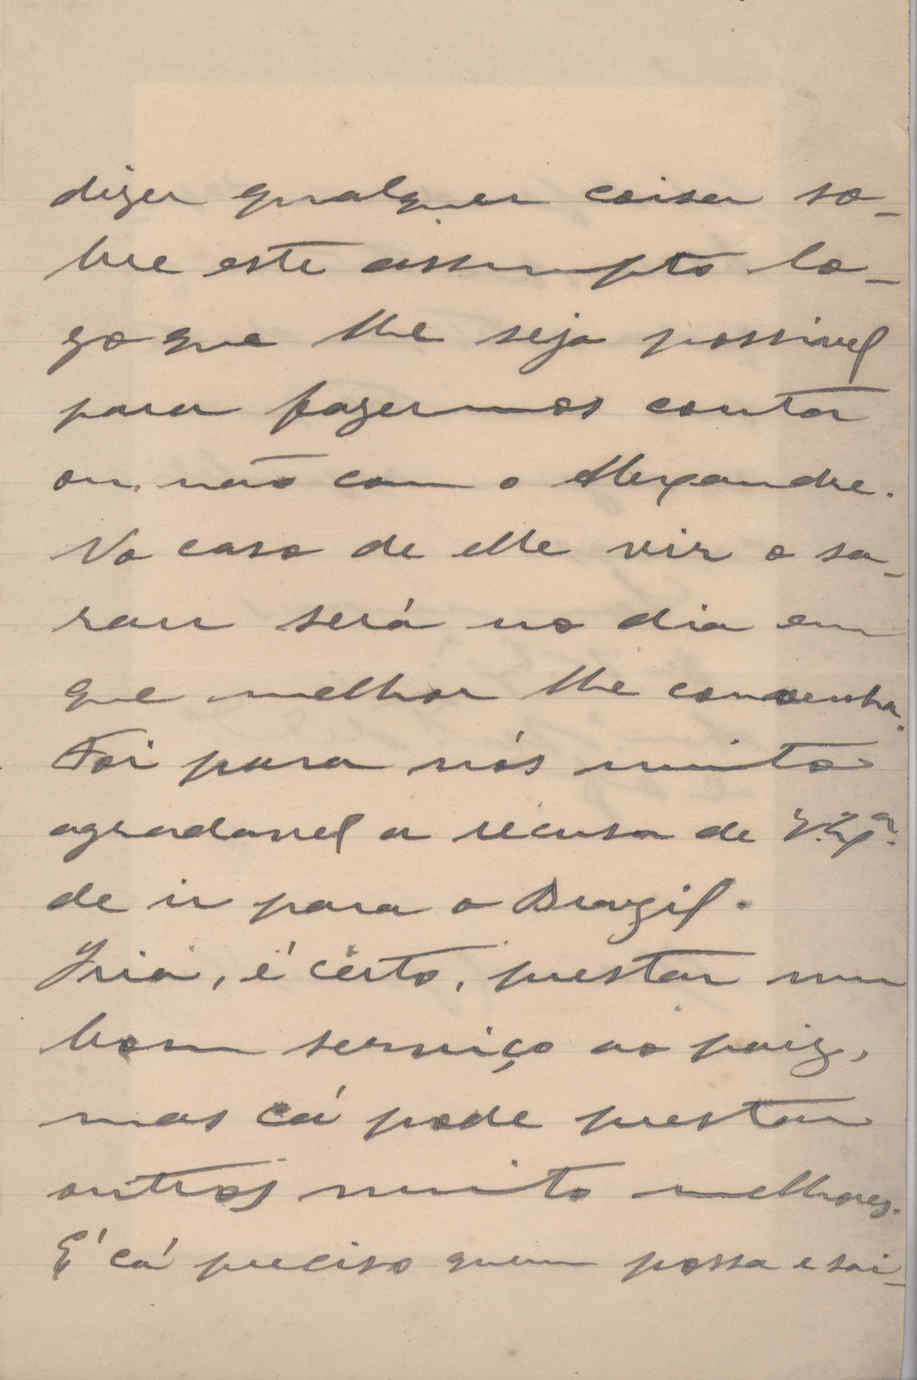 dizer qualquer coisa so-
bre este assumpto lo-
go que lhe seja possivel
para fazermos contar
ou não com o Alexandre.
No caso de elle vir o sa-
rau será no dia em
que melhor lhe convenha.
Foi para nós muito
agradavel a recusa de V. Ex.ª
de ir para o Brazil.
Iria, é cérto, prestar um
bom serviço ao paiz,
mas cá póde prestar
outros muito melhores.
É cá preciso quem possa e sai-